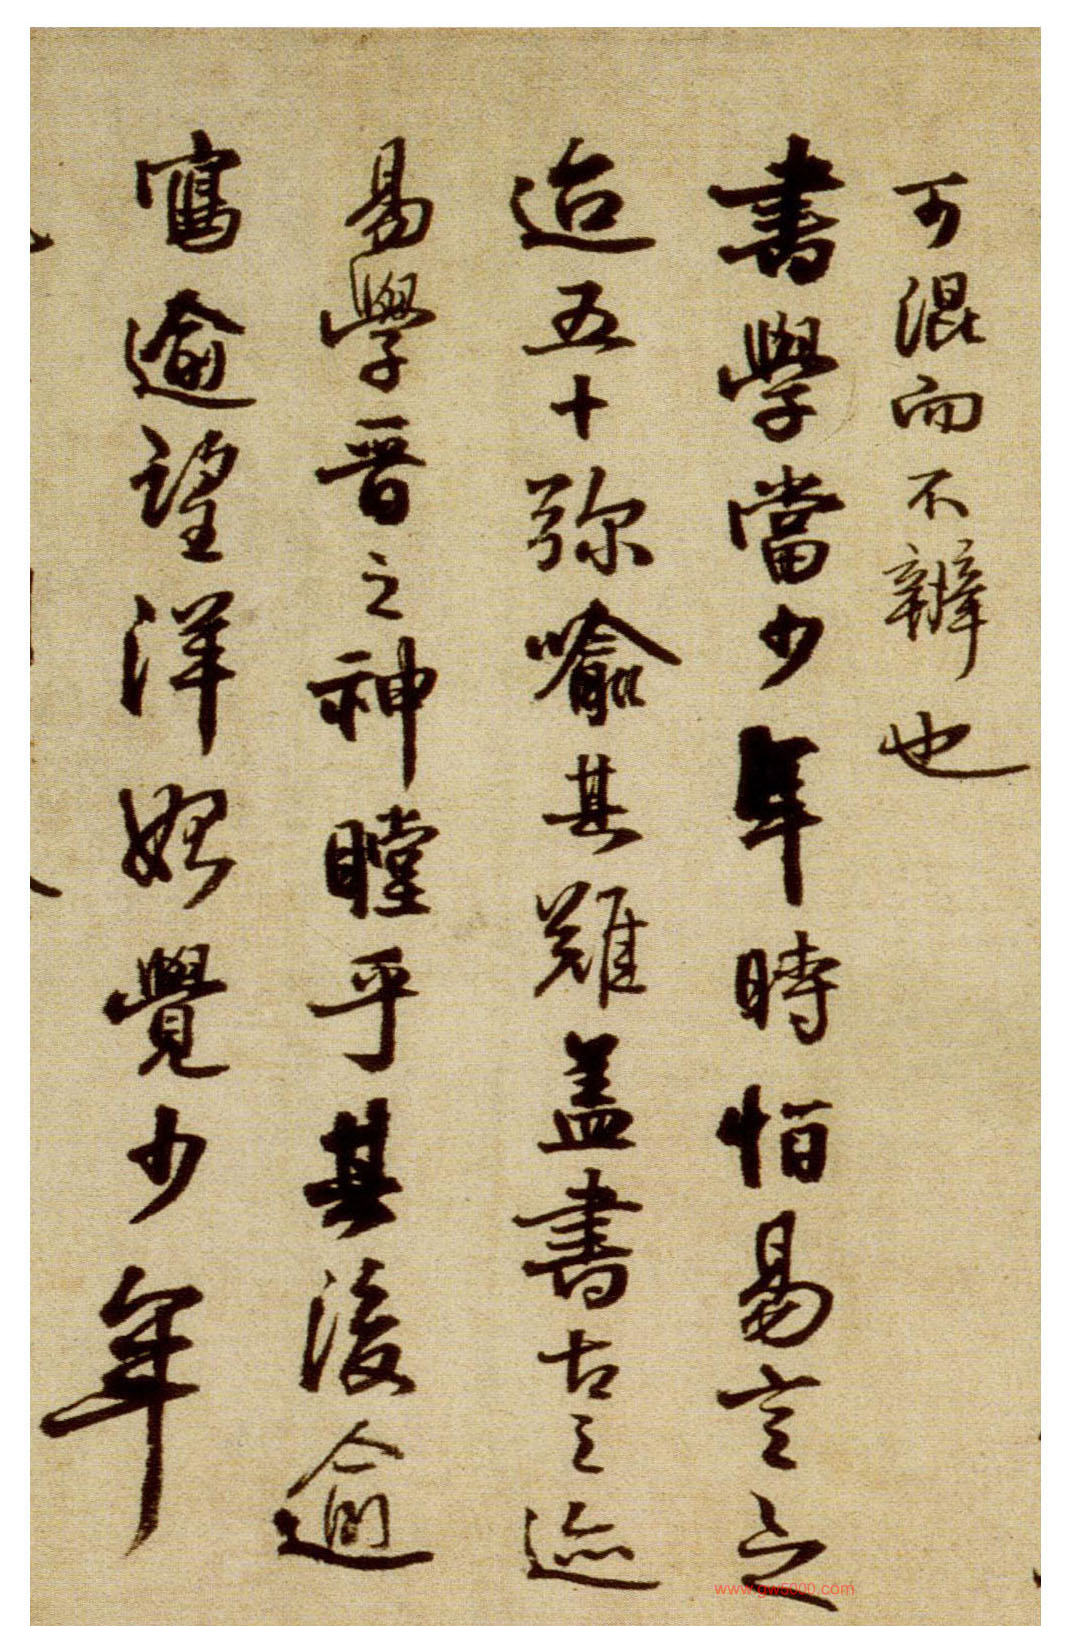 可混而不辨也
書學當少年時恒易言之
迨五十弥喻其難盖書古之迹
易學晋之神瞠乎其後逾
寫逾望洋始覺少年
www.gw5000.com